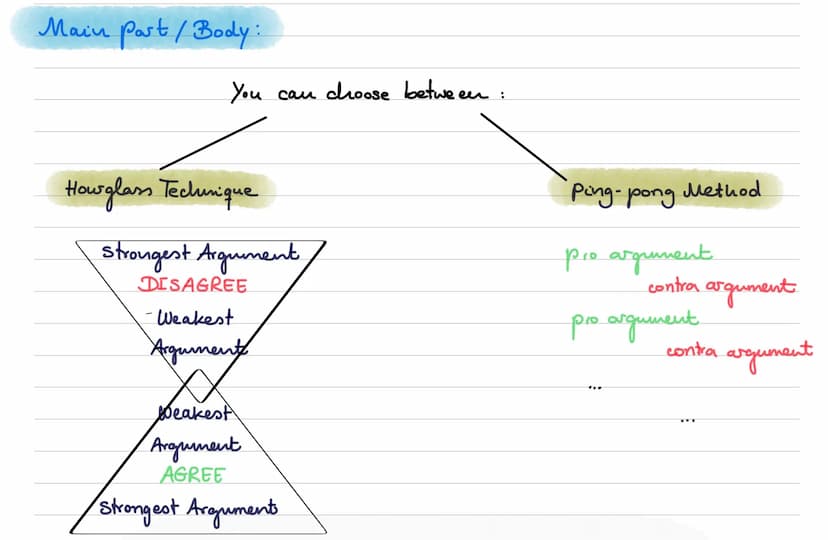 Main part / Body:
You can choose between:
Hourglass Technique
Strongest Argument
DISAGREE
- Weakest
Argument
Weakest
Argument
AGREE
Strongest Argument
Ping-pong Method
pro argument
contra argument
pro argument
contra argument
...
...